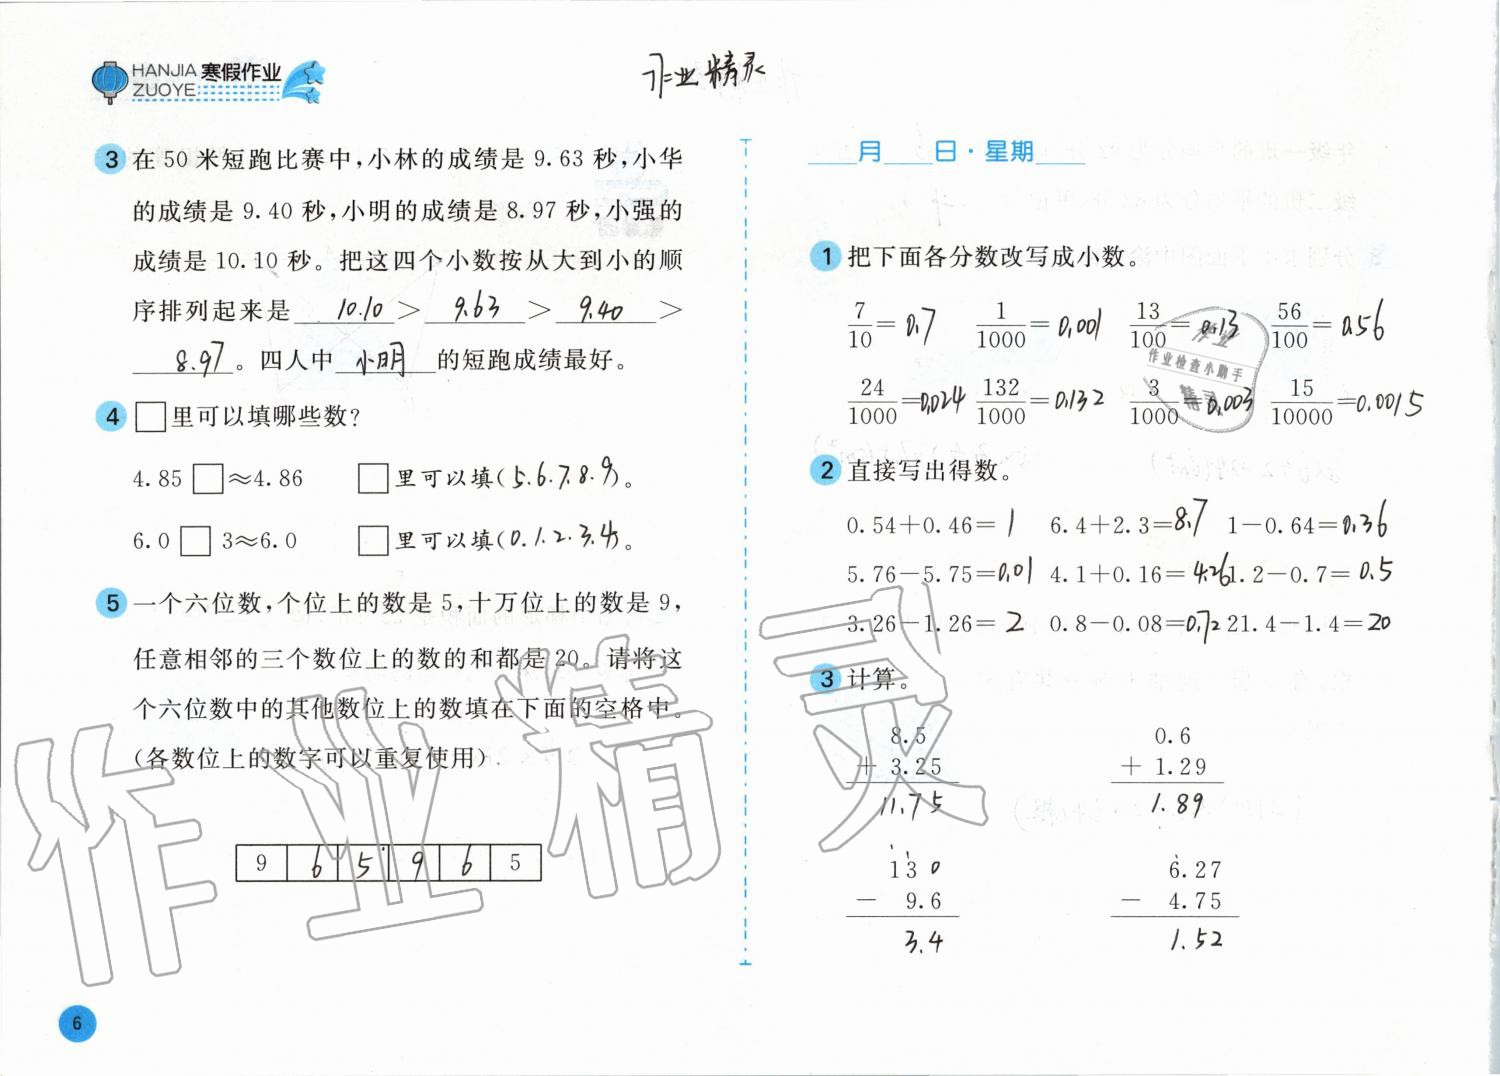 HANJIA 寒假作业
ZUOYE
作业精灵
3 在50米短跑比赛中,小林的成绩是9.63秒,小华
的成绩是9.40秒,小明的成绩是8.97秒,小强的
成绩是10.10秒。把这四个小数按从大到小的顺
序排列起来是 10.10 > 9.63 > 9.40 >
8.97 。四人中 小明 的短跑成绩最好。
4 □里可以填哪些数?
4.85□≈4.86 □里可以填(5.6.7.8.9)。
6.0□3≈6.0 □里可以填(0.1.2.3.4)。
5 一个六位数,个位上的数是5,十万位上的数是9,
任意相邻的三个数位上的数的和都是20。请将这
个六位数中的其他数位上的数填在下面的空格中。
(各数位上的数字可以重复使用)
9 6 5 9 6 5
6
月 日·星期
1 把下面各分数改写成小数。
7/10=0.7 1/1000=0.001 13/100=0.13 56/100=0.56
24/1000=0.024 132/1000=0.132 3/1000=0.003 15/10000=0.0015
2 直接写出得数。
0.54+0.46=1 6.4+2.3=8.7 1-0.64=0.36
5.76-5.75=0.01 4.1+0.16=4.26 1.2-0.7=0.5
3.26-1.26=2 0.8-0.08=0.72 21.4-1.4=20
3 计算。
8.5 0.6
+ 3.25 + 1.29
11.75 1.89
130 6.27
- 9.6 - 4.75
3.4 1.52
作业
作业检查小助手
精灵
作业精灵